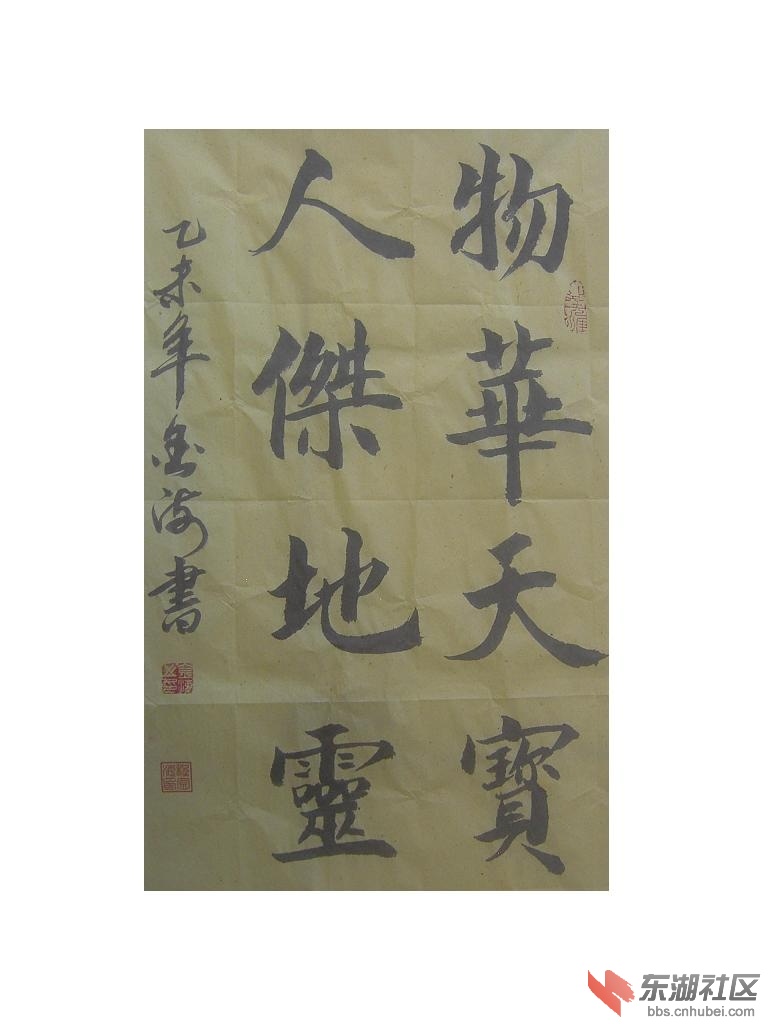 物華天寶
人傑地靈
乙未年金海書
东湖社区
bbs.cnhubei.com